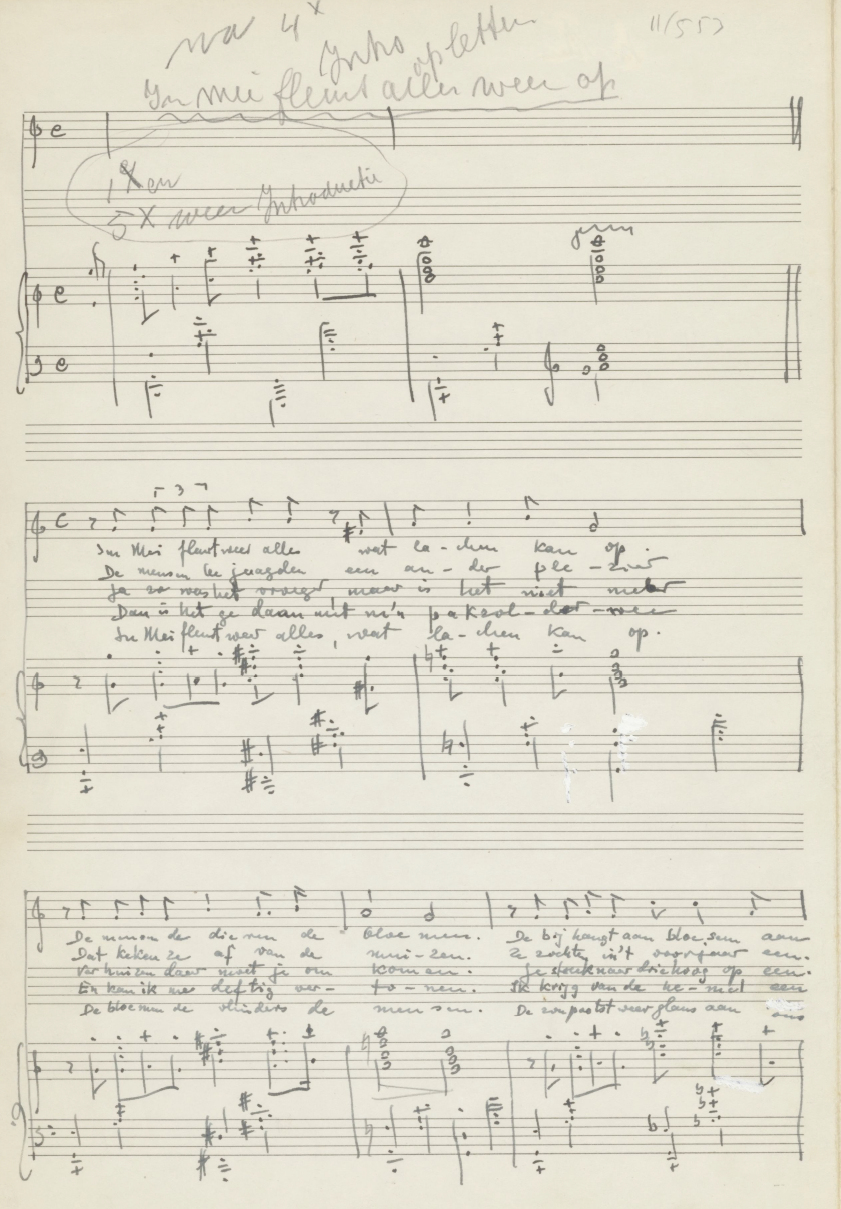 na 4x
11/553
Intro opletten
In Mei fleurt alles weer op
1x en
5x weer Introductie
3
In Mei fleurt weer alles wat la-chen kan op.
De mensen bejaagden een an-der ple-zier
Ja zo was het vroeger, maar is het niet meer
Dan is het gedaan met m'n pakzol-der-
In Mei fleurt weer alles, wat la-chen kan op.
De mensen de dieren de bloemen. De bij hangt aan bloesem aan
Dat keken ze af van de mui-zen. Ze zochten in't voorjaar een.
Verhuizen daar moet je om komen. Je stouk naar driehoog op een.
En kan ik me deftig ver-to-nen. Ik krijg van de he-mel een
De bloemen de vlinders de mensen. De zon poetst weer glans aan ons